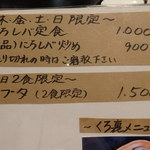 木・金・土・日限定〜
ニラレバ定食 1000
(単品)にらレバ炒め 900
売り切れの時はご容赦下さい
日2食限定〜
ブタ(2食限定) 1.50
〜くろ裏メニュ